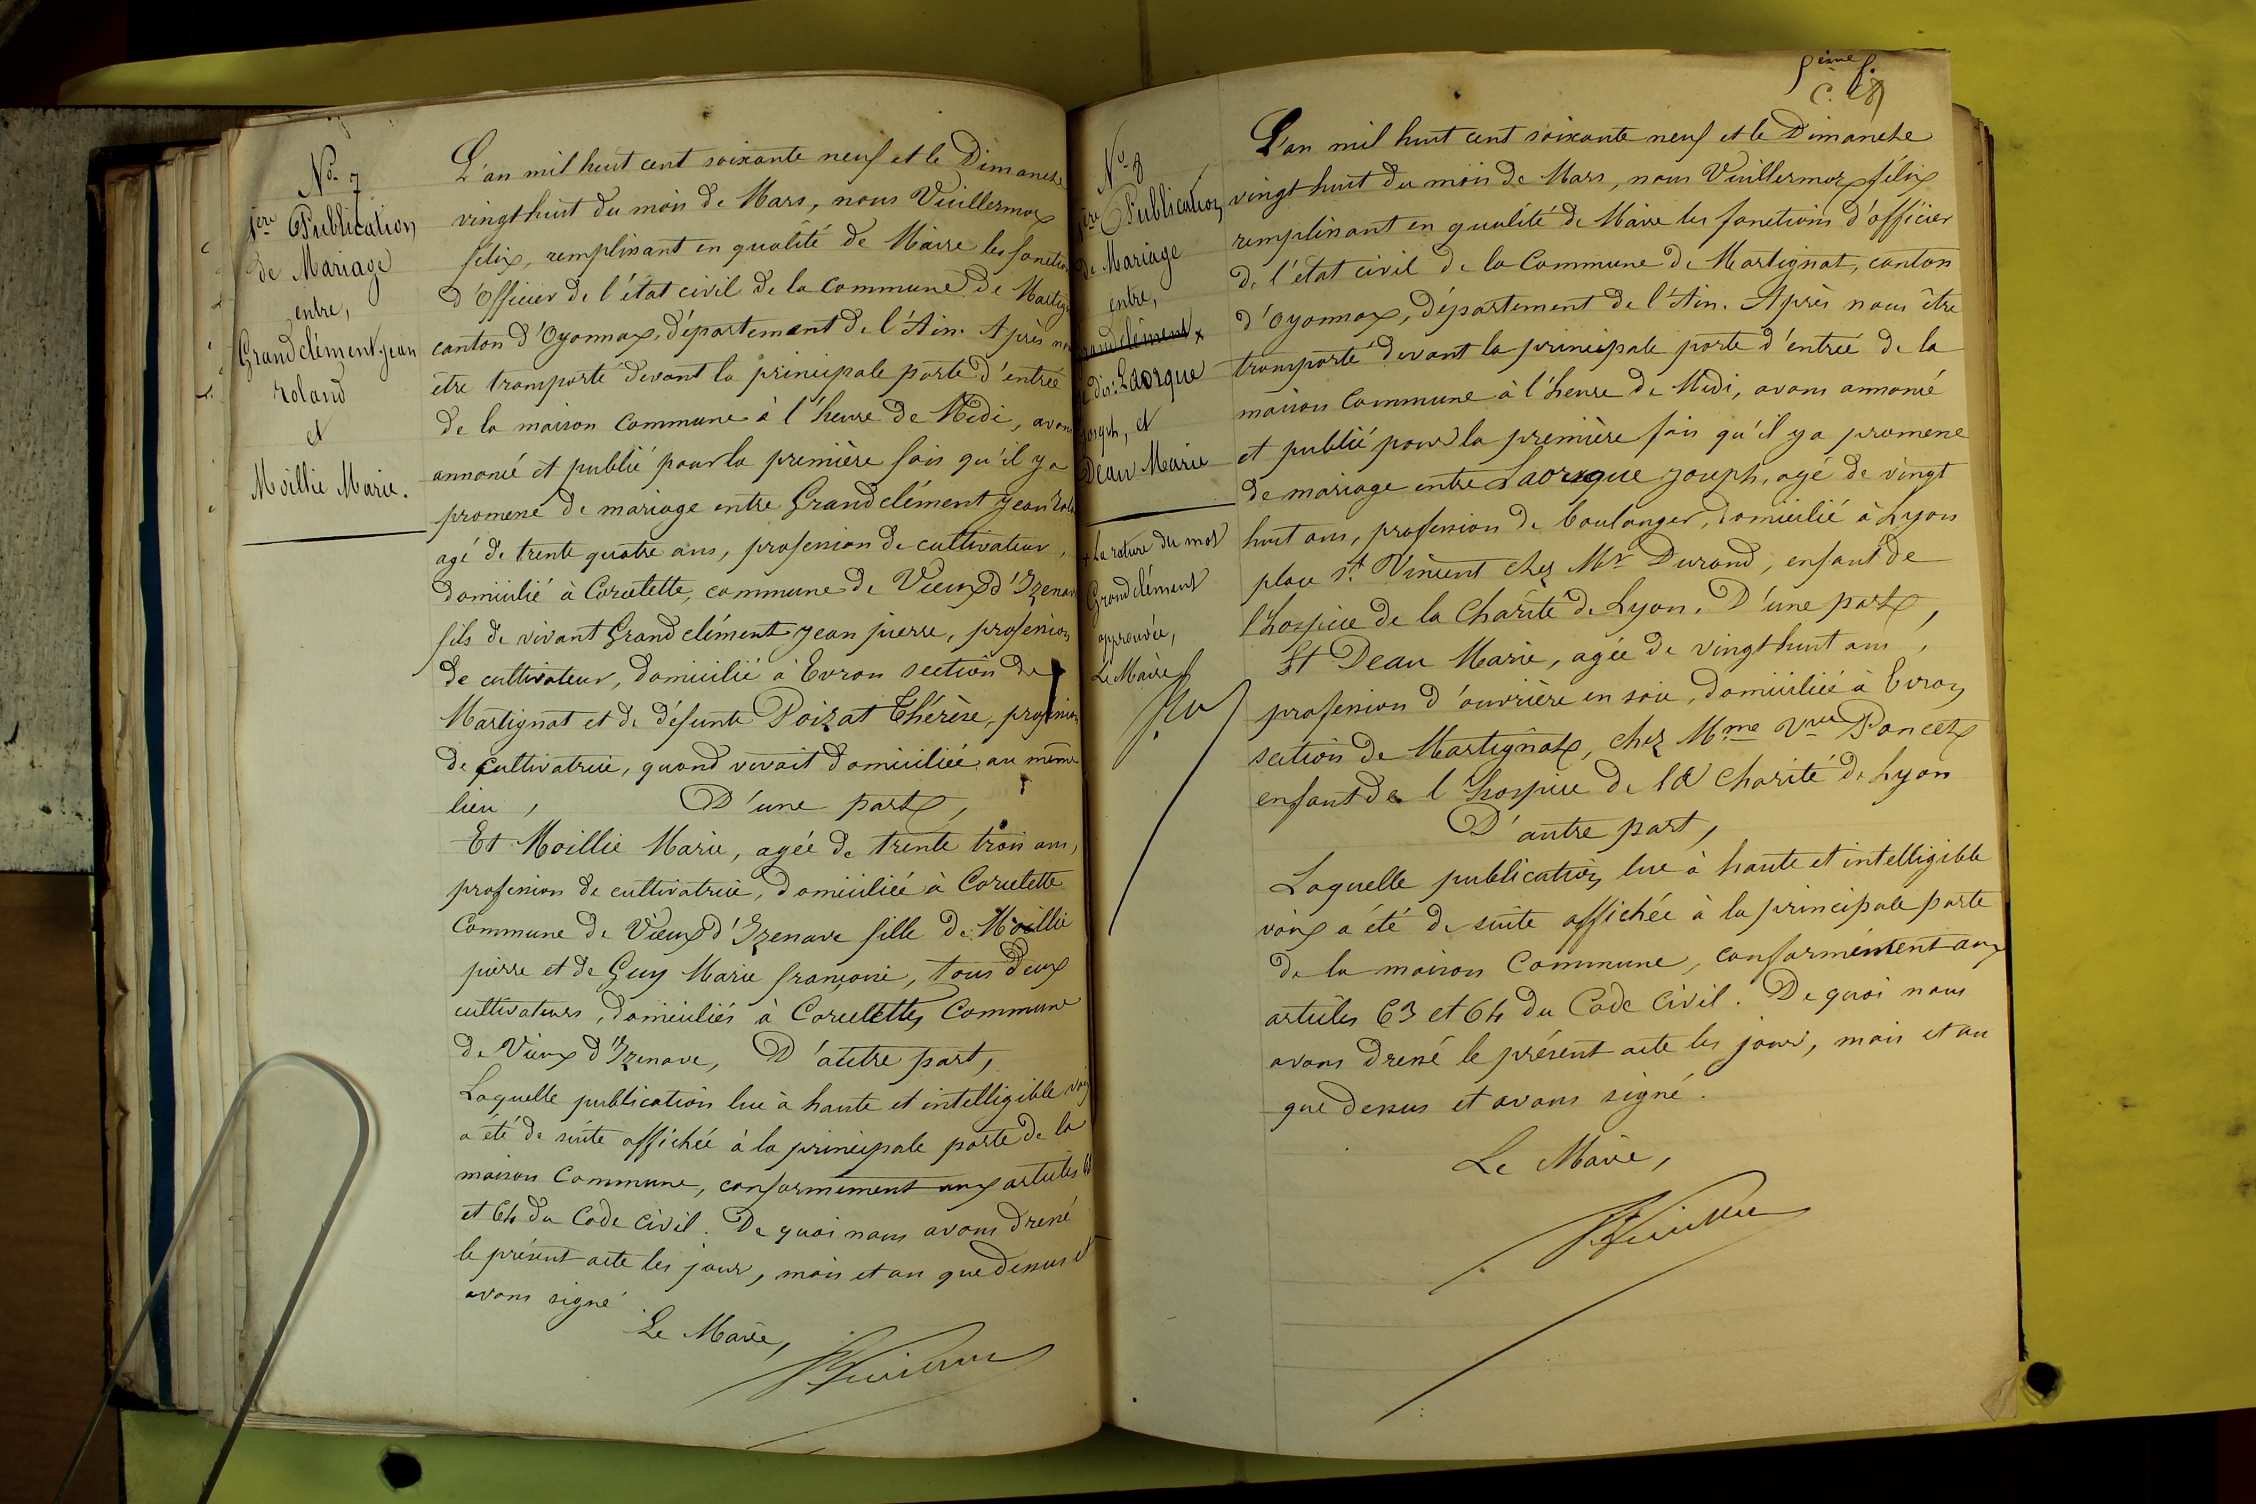 No. 7
1ère Publication
de Mariage
entre,
Grandclément jean
roland
et
Moillie Marie.
L'an mil huit cent soixante neuf et le Dimanche
vingt huit du mois de Mars, nous Vuillermoz
félix, remplissant en qualité de Maire les fonction
d'Officier de l'état civil de la Commune de Martign
canton d'Oyonnax, département de l'Ain. Après no
être transporté devant la principale porte d'entrée
de la maison commune à l'heure de Midi, avons
annoncé et publié pour la première fois qu'il y a
promesse de mariage entre Grandclément jean rola
agé de trente quatre ans, profession de cultivateur,
domicilié à Corcelette, commune de Vieux d'Izenave
fils de vivant Grandclément jean pierre, profession
de cultivateur, domicilié à Evron section de
Martignat et de défunte Poizat Thérèse, profession
de cultivatrice, quand vivait domiciliée au même
lieu, D'une part,
Et Moillie Marie, agée de trente trois ans,
profession de cultivatrice, domiciliée à Corcelette
Commune de Vieux d'Izenave fille de Moillie
pierre et de Guy Marie françoise, tous deux
cultivateurs, domiciliés à Corcelette, Commune
de Vieux d'Izenave, D'autre part,
Laquelle publication lue à haute et intelligible voix
a été de suite affichée à la principale porte de la
maison Commune, conformément aux articles 63
et 64 du Code Civil. De quoi nous avons dressé
le présent acte les jour, mois et an que dessus et
avons signé.
Le Maire,
5ème f.
No. 8
1ère Publication
de Mariage
entre,
randclément x
Laorque
joseph, et
Deau Marie
+ La rature du mot
Grandclément
approuvée,
Le Maire
L'an mil huit cent soixante neuf et le Dimanche
vingt huit du mois de Mars, nous Vuillermoz félix
remplissant en qualité de Maire les fonctions d'officier
de l'état civil de la Commune de Martignat, canton
d'Oyonnax, département de l'Ain. Après nous être
transporté devant la principale porte d'entrée de la
maison Commune à l'heure de Midi, avons annoncé
et publié pour la première fois qu'il y a promesse
de mariage entre Laorque joseph, agé de vingt
huit ans, profession de boulanger, domicilié à Lyon
place St. Vincent chez Mr Durand, enfant de
l'hospice de la Charité de Lyon. D'une part,
Et Deau Marie, agée de vingt huit ans,
profession d'ouvrière en soie, domiciliée à Evron
section de Martignat, chez Mme Vve Poncet
enfant de l'hospice de la Charité de Lyon
D'autre part,
Laquelle publication lue à haute et intelligible
voix a été de suite affichée à la principale porte
de la maison Commune, conformément aux
articles 63 et 64 du Code Civil. De quoi nous
avons dressé le présent acte les jour, mois et an
que dessus et avons signé.
Le Maire,